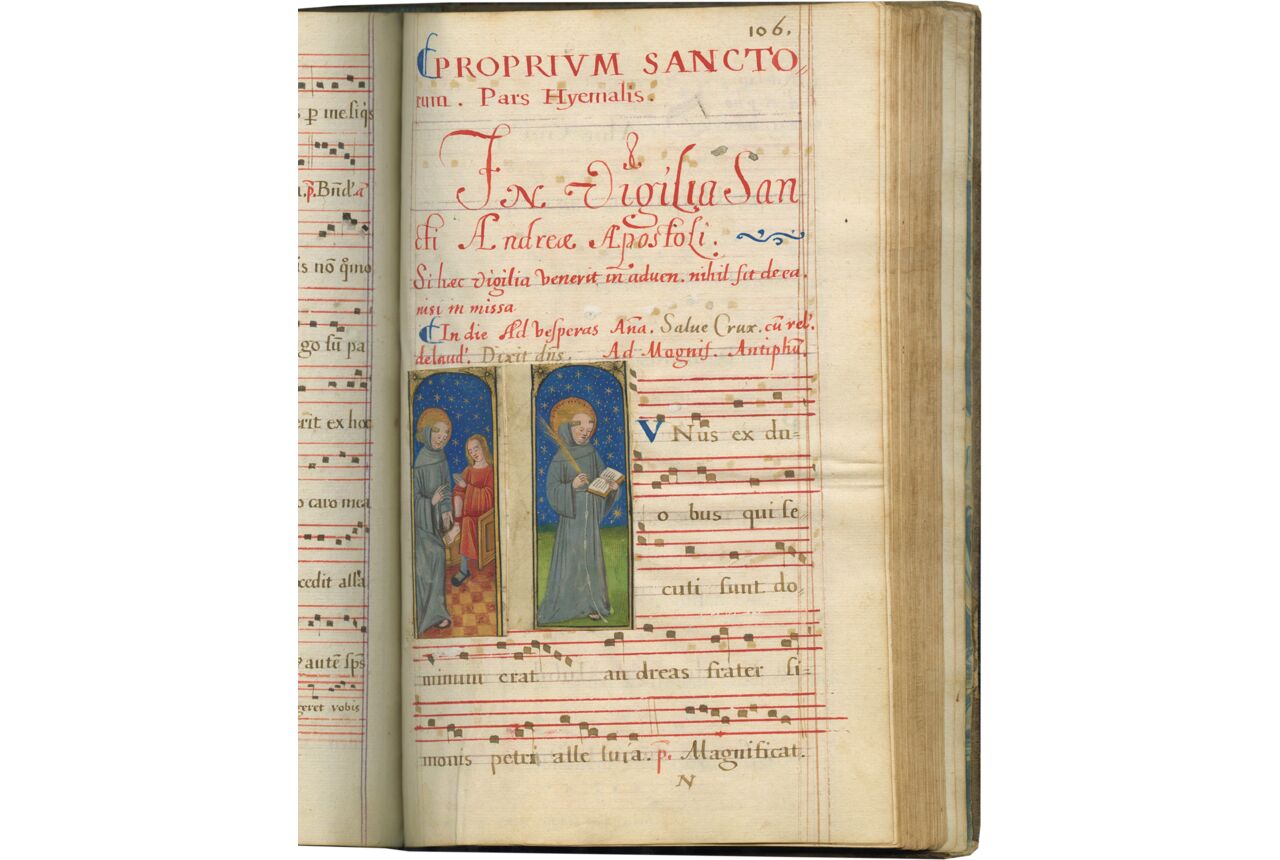 ꝑ meſiꝗs
.p. Bñd'.a
is nõ q̃mo
go ſũ pa
erit ex hoc
o caro mea
cedit aſſa
autẽ ſp̃s
geret vobis
106.
PROPRIVM SANCTO
rum. Pars Hyemalis.
IN Vigilia San
cti Andreæ Apoſtoli.
Si hæc vigilia venerit in aduen. nihil fit de ea.
niſi in miſſa
In die Ad veſperas Aña. Salue Crux. cũ rel'.
de laud'. Dixit dñs. Ad Magnif. Antiphã.
VNus ex du-
o bus qui ſe
cuti ſunt do
minum erat an dreas frater ſi-
monis petri alle luia. p̃. Magnificat.
N